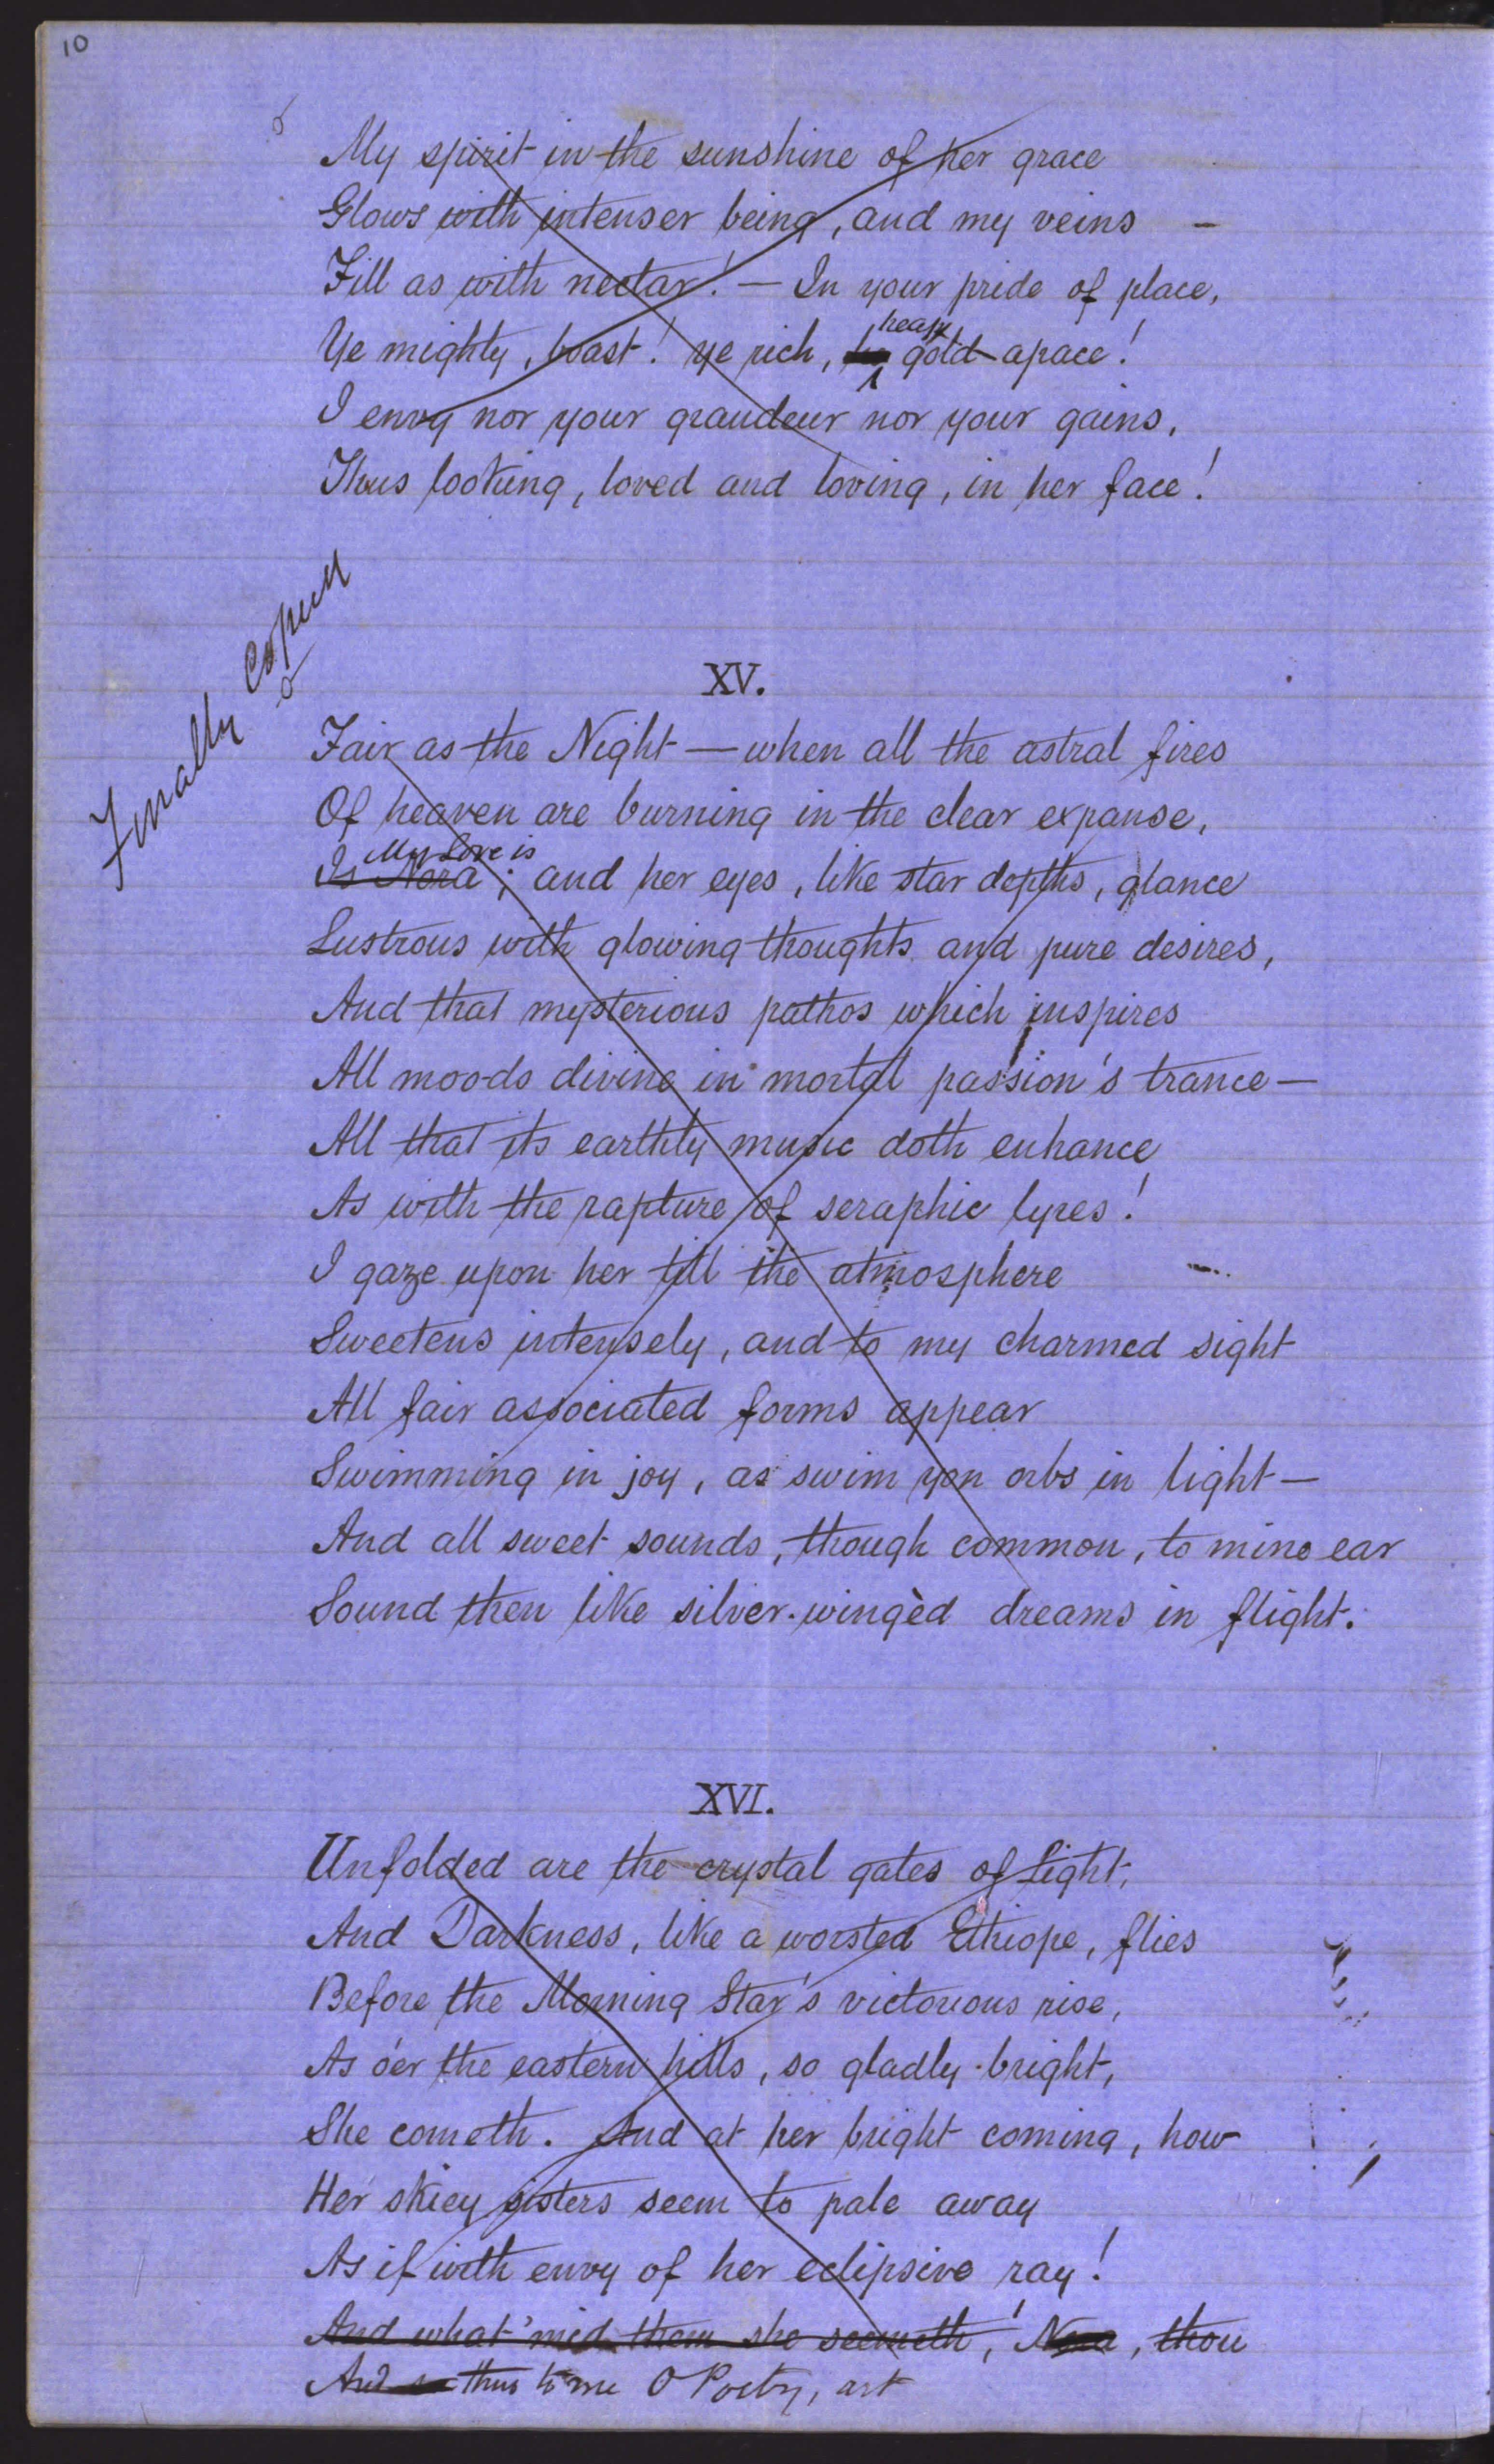 10
My spirit in the sunshine of her grace
Glows with intenser being, and my veins –
Fill as with nectar! — In your pride of place,
heap
Ye mighty, boast! ye rich, gold apace!
I envy nor your grandeur nor your gains,
Thus looking, loved and loving, in her face!
Finally
XV.
Fair as the Night — when all the astral fires
Of heaven are burning in the clear expanse,
My Love is
Is Nora; and her eyes, like star depths, glance
Lustrous with glowing thoughts and pure desires,
And that mysterious pathos which inspires
All moods divine in mortal passion's trance —
All that its earthly music doth enhance
As with the rapture of seraphic lyres!
I gaze upon her till the atmosphere
Sweetens intensely, and to my charmed sight
All fair associated forms appear
Swimming in joy, as swim yon orbs in light —
And all sweet sounds, though common, to mine ear
Sound then like silver-wingèd dreams in flight.
XVI.
Unfolded are the crystal gates of Light,
And Darkness, like a worsted Ethiope, flies
Before the Morning Star's victorious rise,
As o'er the eastern hills, so gladly-bright,
She cometh. And at her bright coming, how
Her skiey sisters seem to pale away
As if with envy of her eclipsive ray!
And what 'mid them she seemeth, Nora, thou
And thus to me O Poetry, art